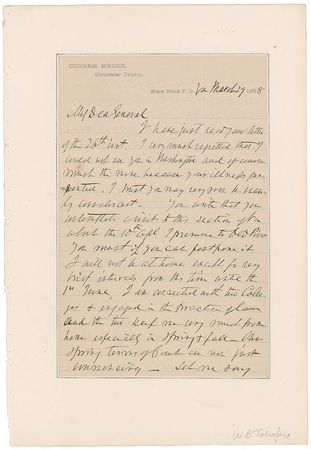 DUNHAM MASSIE,
Gloucester County.
Ware Neck P. O., Va March 29 1888
My Dear General
I have just recd your letter
of the 26th inst. I very much regretted that I
could not see you in Washington and of course
much the more because your illness pre-
vented. I trust you may very soon be
convalescent. You write that you
contemplate a visit to this section of Va
about the 10th Apl I presume to
You must if you can postpone it
I will not be at home except for very
brief intervals from this time until the
1st June, I am connected with two Colle-
ges & engaged in the practice of law
and the two keep me very much from
home especially in Spring & fall — Our
Spring terms of Court are now just
commencing — Let me say
W. B. Taliaferro